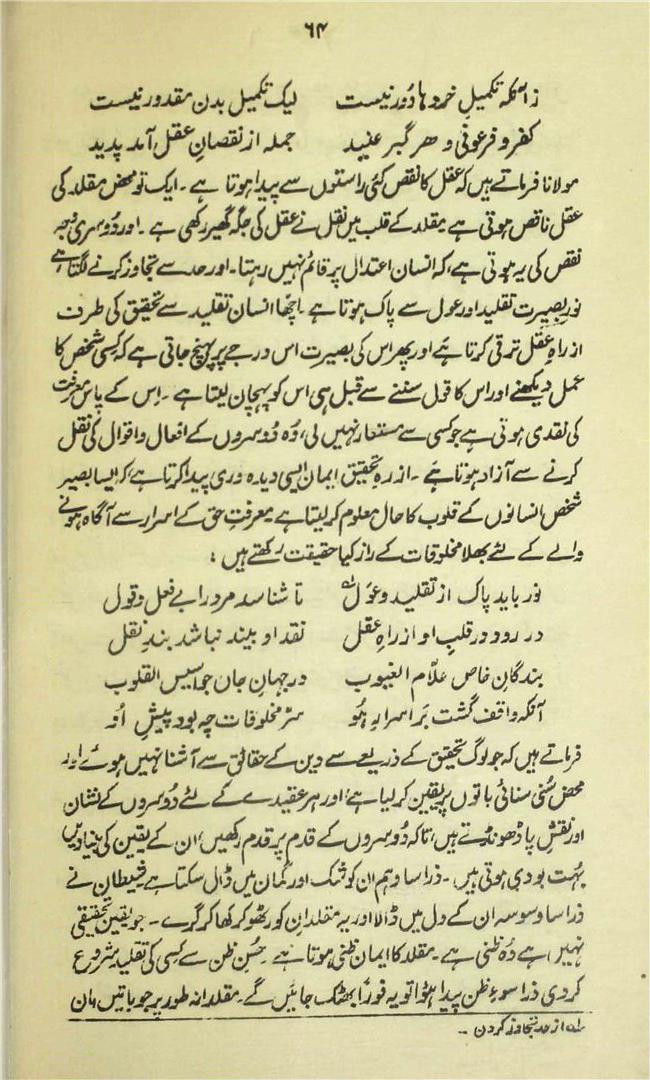 ۶۴
زانکہ تکمیلِ خردہا دُور نیست    لیک تکمیل بدن مقدور نیست
کفر و فرعونی و ھر گبر عنید    جملہ از نقصانِ عقل آمد پدید
مولانا فرماتے ہیں کہ عقل کا نقص کئی راستوں سے پیدا ہوتا ہے ۔ ایک تو محض مقلد کی
عقل ناقص ہوتی ہے مقلد کے قلب میں نقل نے عقل کی جگہ گھیر رکھی ہے ۔ اور دُوسری وجہ
نقص کی یہ ہوتی ہے، کہ انسان اعتدال پر قائم نہیں رہتا۔ اور حد سے تجاوز کرنے لگتا ہے
نورِ بصیرت تقلید اور عول سے پاک ہوتا ہے ۔ اچّھا انسان تقلید سے تحقیق کی طرف
از راہِ عقل ترقی کرتا ہے اور پھر اس کی بصیرت اس درجے پر پہنچ جاتی ہے کہ کسی شخص کا
عمل دیکھنے اور اس کا قول سننے سے قبل ہی اس کو پہچان لیتا ہے ۔ اِس کے پاس معرفت
کی نقدی ہوتی ہے جو کسی سے مستعار نہیں لی، وُہ دُوسروں کے افعال و اقوال کی نقل
کرنے سے آزاد ہوتا ہے ۔ از رہِ تحقیق ایمان ایسی دیدہ وری پیدا کرتا ہے، کہ ایسا بصیر
شخص انسانوں کے قلوب کا حال معلوم کر لیتا ہے معرفتِ حق کے اسرار سے آگاہ ہونے
والے کے لئے بھلا مخلوقات کے راز کیا حقیقت رکھتے ہیں :
نور باید پاک از تقلید و عَول لہ    تا شناسد مرد را بے فعل و قول
در رود در قلبِ او از راہِ عقل    نقد او بیند نباشد بندِ نقل
بندگانِ خاص علّام الغیوب    در جہانِ جاں جواسیس القلوب
آنکہ واقف گشت بَر اسرارِ ہُو    سرّ مخلوقات چہ بود پیشِ اُو
فرماتے ہیں کہ جو لوگ تحقیق کے ذریعے سے دین کے حقائق سے آشنا نہیں ہوئے اور
محض سُنی سنائی باتوں پر یقین کر لیا ہے، اور ہر عقیدے کے لئے دُوسروں کے نشان
اور نقشِ پا ڈھونڈتے ہیں، تاکہ دُوسروں کے قدم پر قدم رکھیں، ان کے یقین کی بنیادیں
بہُت بودی ہوتی ہیں ۔ ذرا سا وہم ان کو شک اور گمان میں ڈال سکتا ہے شیطان نے
ذرا سا وسوسہ ان کے دل میں ڈالا اور یہ مقلدانِ کور ٹھوکر کھا کر گرے ۔ جو یقین تحقیقی
نہیں ہے وُہ ظنی ہے ۔ مقلد کا ایمان ظنی ہوتا ہے ۔ حُسنِ ظن سے کسی کی تقلید شروع
کر دی ذرا سوءِ ظن پیدا ہُوا تو یہ فوراً بھٹک جائیں گے ۔ مقلدانہ طور پر جو باتیں مان
لہ از حد تجاوز کردن ۔